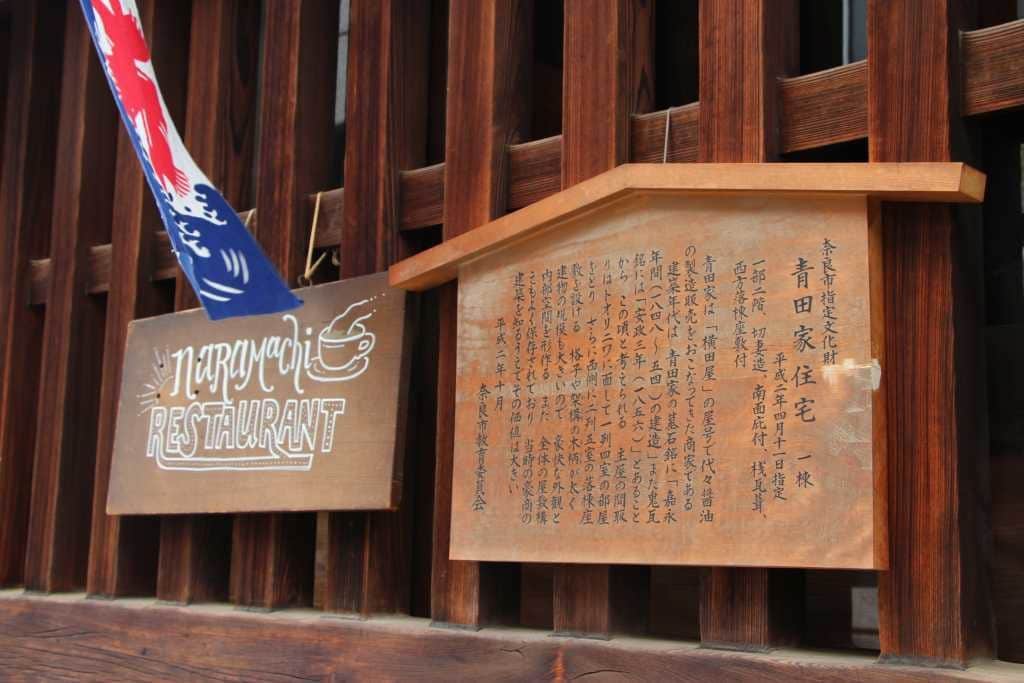 NARAMachi
RESTAURANT
奈良市指定文化財
青田家住宅 一棟
平成二年四月十一日指定
一部二階、切妻造、南面庇付、桟瓦葺、
西方落棟座敷付
青田家は「横田屋」の屋号で代々醤油
の製造販売をおこなってきた商家である
建築年代は 青田家の墓石銘に「嘉永
年間(一八四八〜五四)の建造」また鬼瓦
銘には「安政三年(一八五六)」とあること
から この頃と考えられる 主屋の間取
りはトオリニワに面して一列四室の部屋
をとり さらに西側に二列五室の落棟座
敷を設ける 格子や架構の木柄が太く
建物の規模も大きいので 豪快な外観と
内部空間を形作る また 全体の屋敷構
えもよく保存されており 当時の豪商の
建築を知るうえでその価値は大きい
平成二年十月
奈良市教育委員会